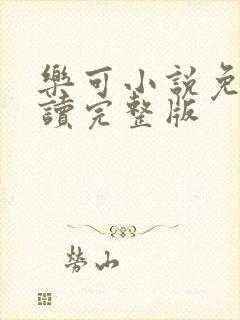 樂可小說免
讀完整版
勞山